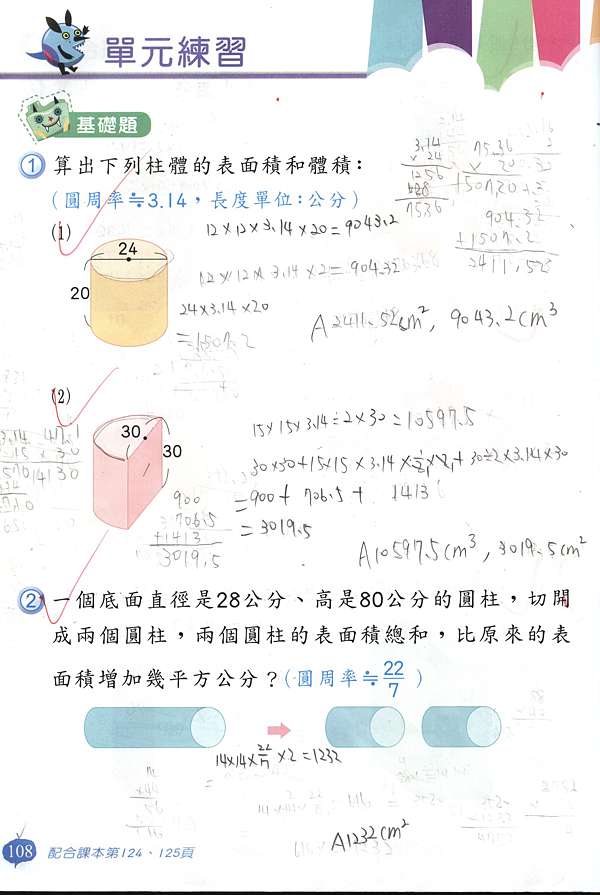 單元練習
基礎題
① 算出下列柱體的表面積和體積：
(圓周率≒3.14，長度單位：公分)
(1)
24
20
12×12×3.14×20=9043.2
12×12×3.14×2=904.32
24×3.14×20
=1507.2
A 2411.52cm², 9043.2cm³
3.14
× 24
1256
628
75.36
75.36
× 20
1507.20
904.32
+1507.2
2411.52
(2)
30
30
15×15×3.14÷2×30=10597.5
30×30+15×15×3.14×½×2+30÷2×3.14×30
=900+706.5+1413
=3019.5
900
706.5
+1413
3019.5
A10597.5cm³, 3019.5cm²
② 一個底面直徑是28公分、高是80公分的圓柱，切開
成兩個圓柱，兩個圓柱的表面積總和，比原來的表
面積增加幾平方公分？(圓周率≒22/7)
14×14×22/7×2=1232
A1232cm²
108 配合課本第124、125頁